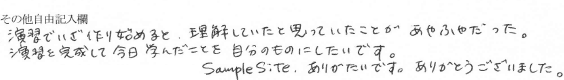 その他自由記入欄
演習でいざ作り始めると、理解していたと思っていたことが あやふやだった。
演習を完成して今日学んだことを自分のものにしたいです。
SampleSite、ありがたいです。ありがとうございました。